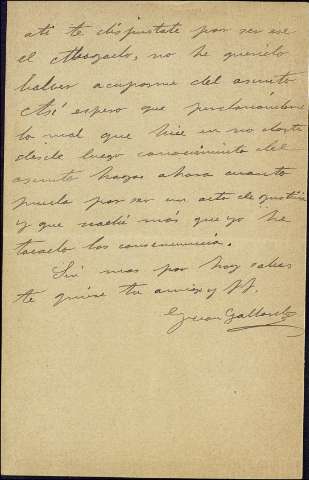 te disgustate por ser ese
el Abogado, no he querido
volver a cuparme del asunto
Así espero que perdonándome
lo mal que hice en no darte
desde luego conocimiento del
asunto hagas ahora cuanto
pueda por ser un acto de justicia
y que nadie más que yo he
tocado las consecuencia.
Sin mas por hoy sabes
te quiere tu amigo y
Juan Gallardo